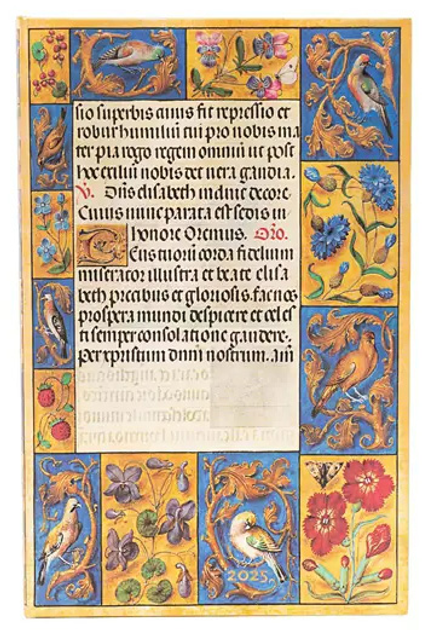 sio superbis cuius fit repressio et
robur humiliū cui pro nobis ma
ter pia rogo regem omniū ut post
hoc exiliū nobis det vera gaudia.
V. Dūs elisabeth induic decore.
Cuius nunc parata est sedis in
honore Oremus. Oro.
Deus tuorū corda fidelium
miserator illustra et beate elisa
beth precibus et gloriosis. fac nos
prospera mundi despicere et celes
ti semper consolatione gaudere.
Per xpristum dnm̄ nostrum. am̄
2025